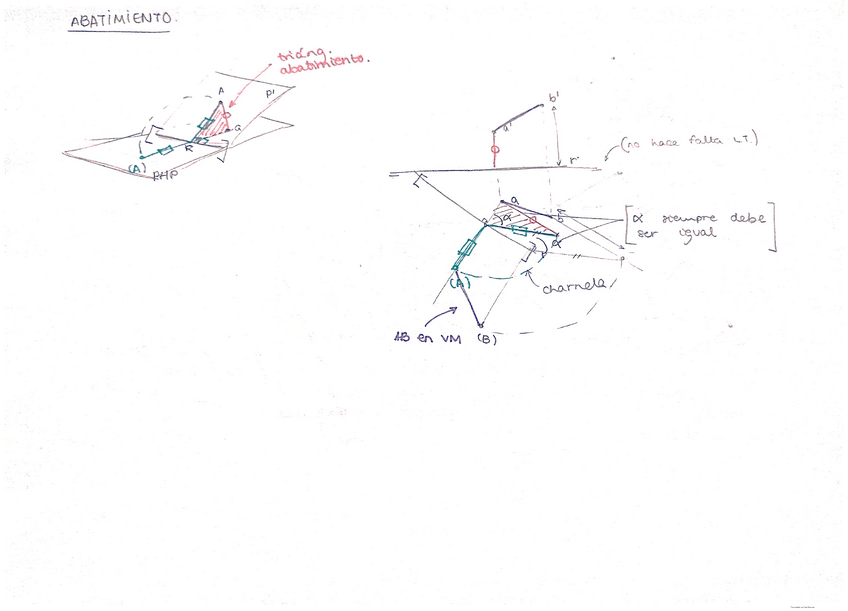 ABATIMIENTO.
triáng.
abatimiento.
A
P'
a
R
(A)
PHP
b'
a'
r'
(no hace falta LT.)
a
α
b
α
[α siempre debe
ser igual]
(A)
charnela
AB en VM
(B)